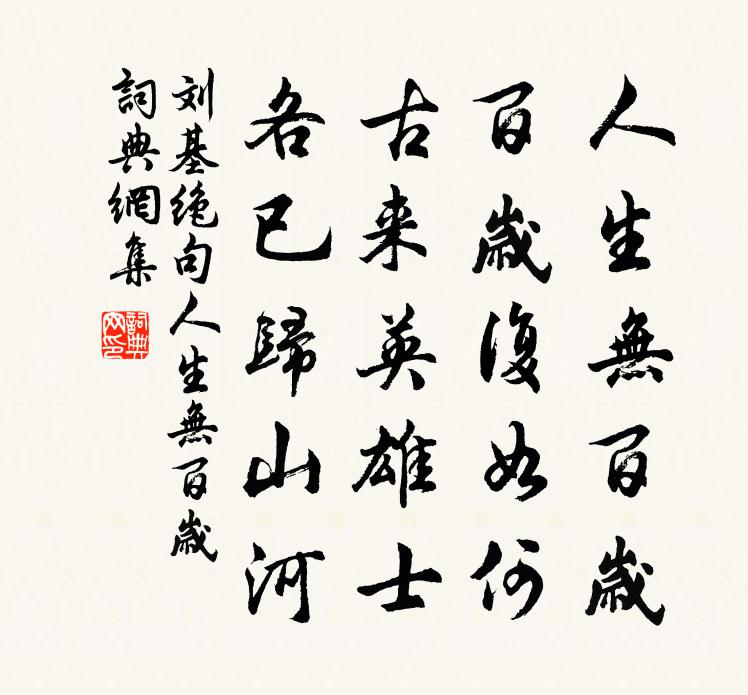 人生無百歲
百歲復如何
古来英雄士
各已歸山河
刘基绝句人生無百歲
詞典網集
詞典网印